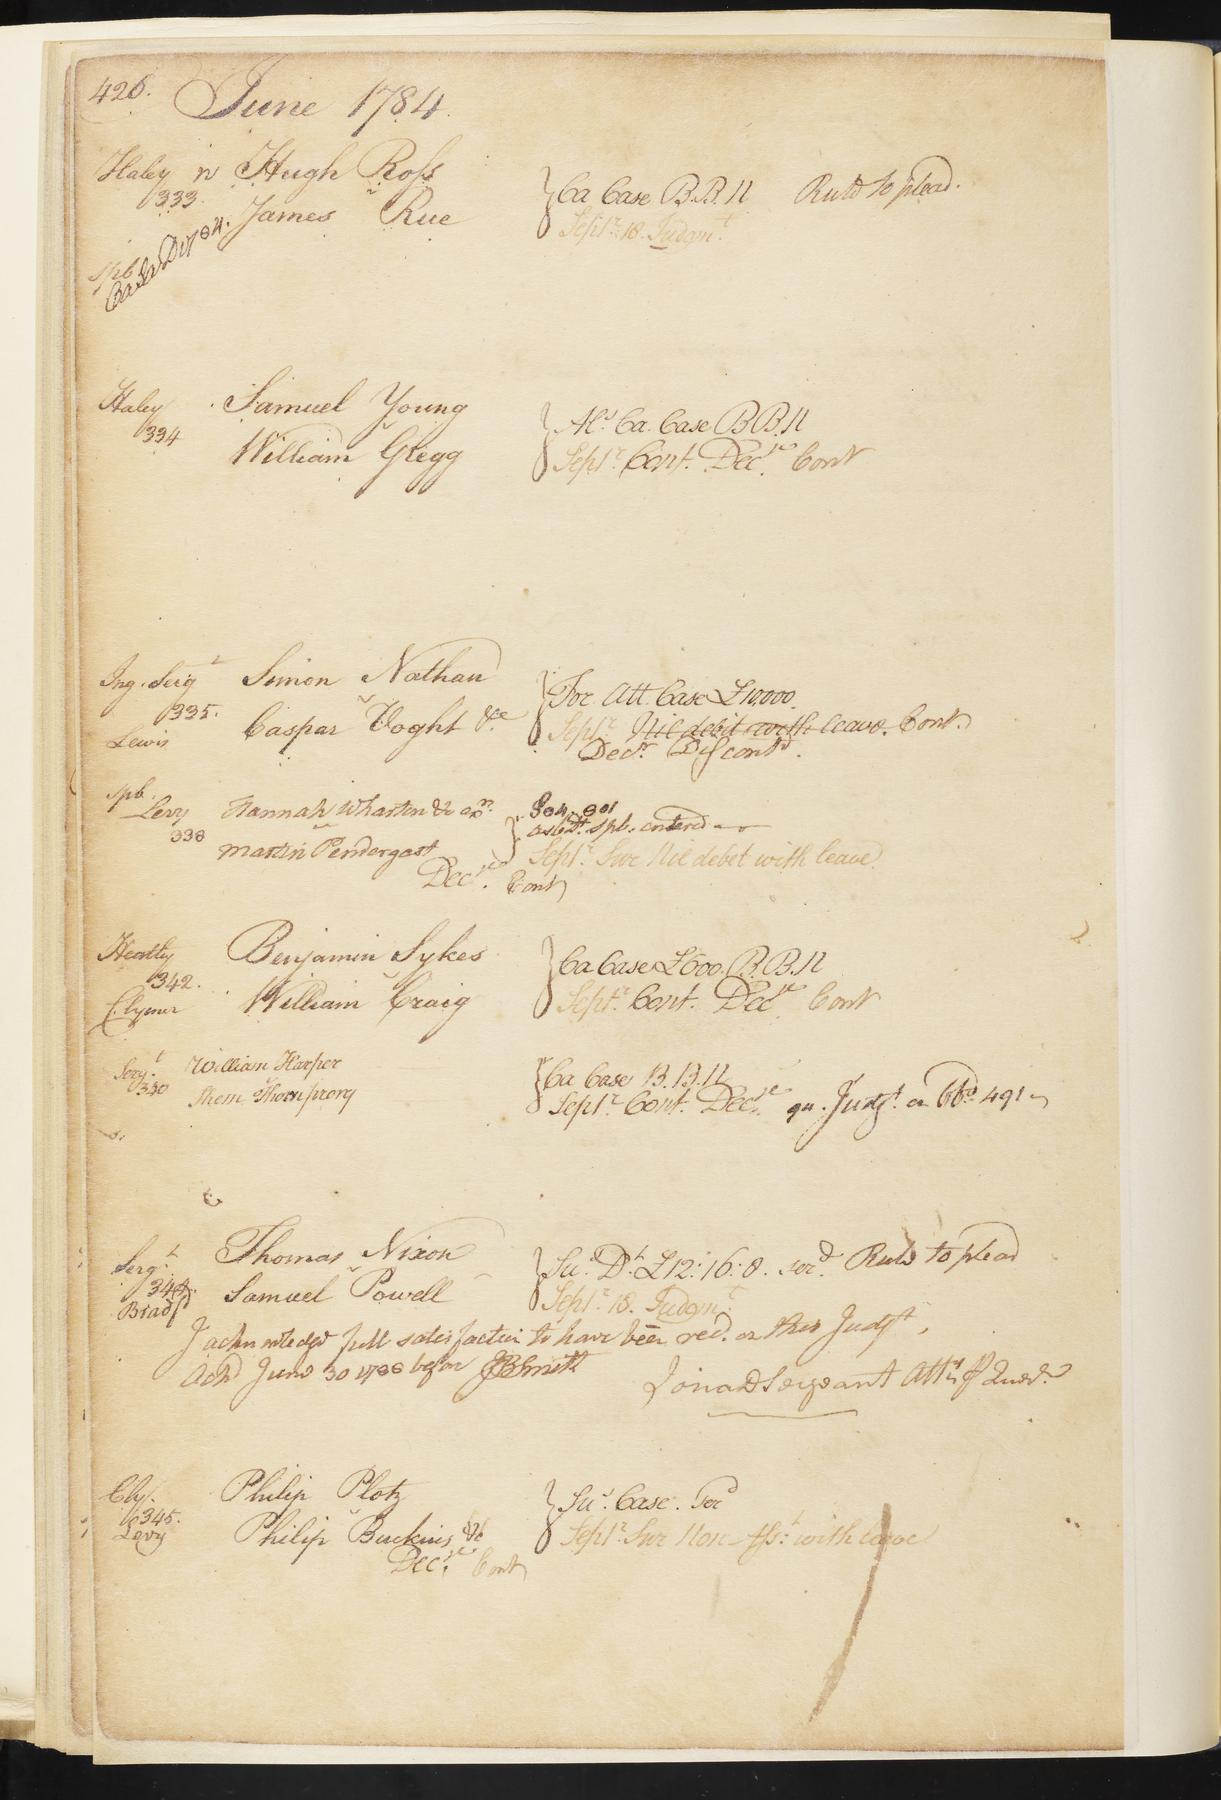 426. June 1784.
Haley n Hugh Ross
333. v
James Rue
} Ca Case B.B.N Ruld to plead.
Septr. 18. Judgmt.
Spb
Haley Samuel Young
334 v
William Gregg
} Als. Ca. Case B B N
Septr. Cont. Decre Cont
Ing. Sergt Simon Nathan
335. v
Lewis Caspar Voght &c
} For Att. Case £10,000.
Septr. Nil debit with leave. Cont.
Decr. Discontd.
spb.
Levy Hannah Wharton & an
338 v
Martin Pendergast
spb. entered
Septr. Sur Nil debet with leave
Decre. Cont
Heatly Benjamin Sykes
342. v
Clymer William Craig
} Ca Case £600. B.B.N
Septr. Cont. Decre Cont
Sergt. William Harper
340
Thom Thompson
} Ca Case B.B.N
Septr. Cont. Decre. qu. Judgt. 491
Sergt. Thomas Nixon
344. v
Bradfd Samuel Powell
} Su. Dt. £12:16:8. serd. Ruld to plead
Septr. 18. Judgmt.
I acknowledge full satisfaction to have been recd. on this Judgt.
Ackd June 30 1788 before JBSmith
Jona D Sergeant Atty
Cly. Philip Plotz
345. v
Levy Philip Buckius &c
} Sus. Case. Serd
Septr. Sur Non Asst. with leave
Decre. Cont